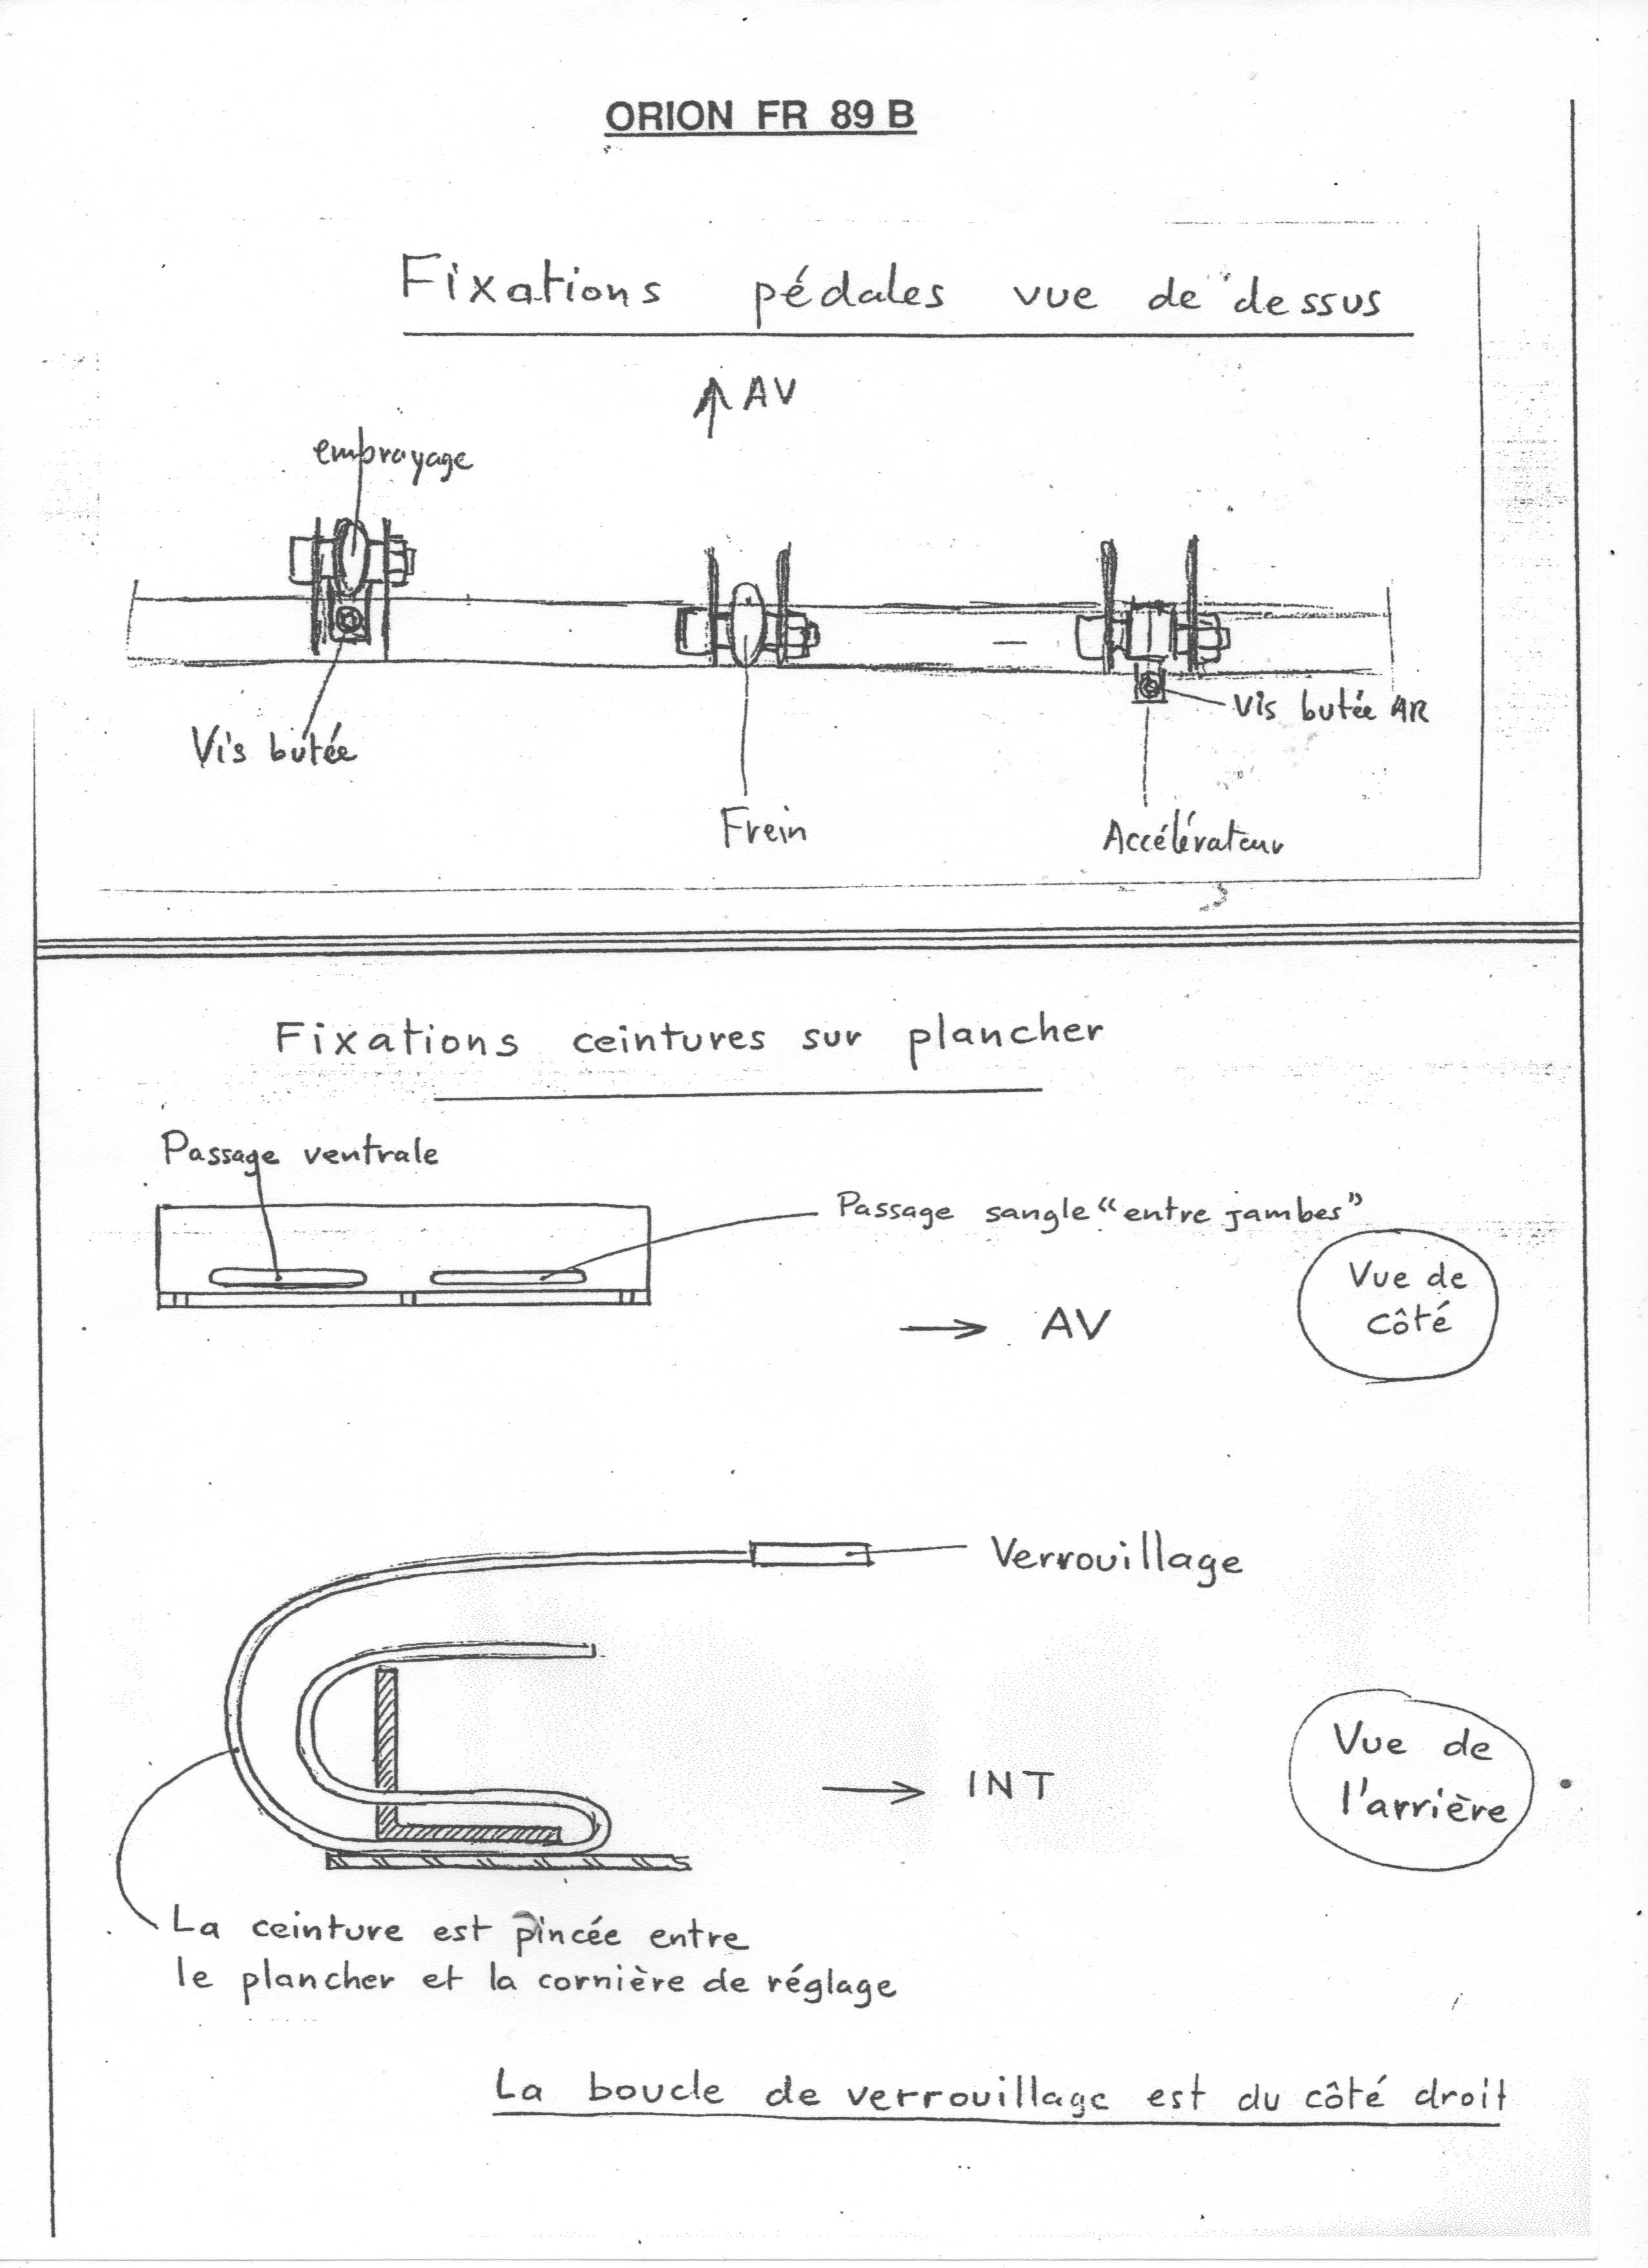 ORION FR 89 B
Fixations pédales vue de dessus
AV
embrayage
Vis butée
Vis butée AR
Frein
Accélérateur
Fixations ceintures sur plancher
Passage ventrale
Passage sangle "entre jambes"
Vue de
côté
AV
Verrouillage
INT
Vue de
l'arrière
La ceinture est pincée entre
le plancher et la cornière de réglage
La boucle de verrouillage est du côté droit